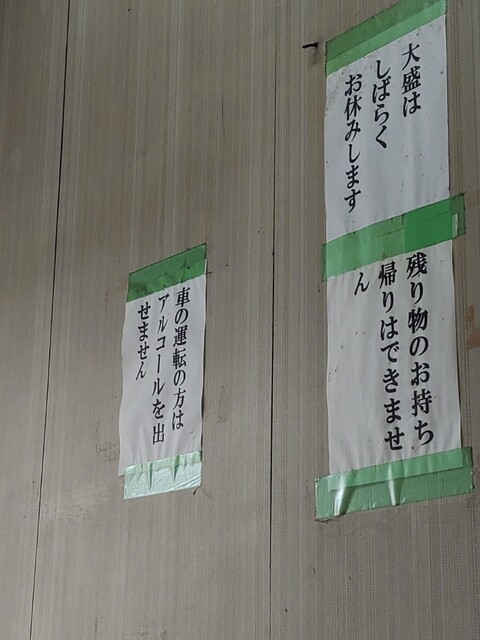 大盛は
しばらく
お休みします
残り物のお持ち
帰りはできませ
ん
車の運転の方は
アルコールを出
せません